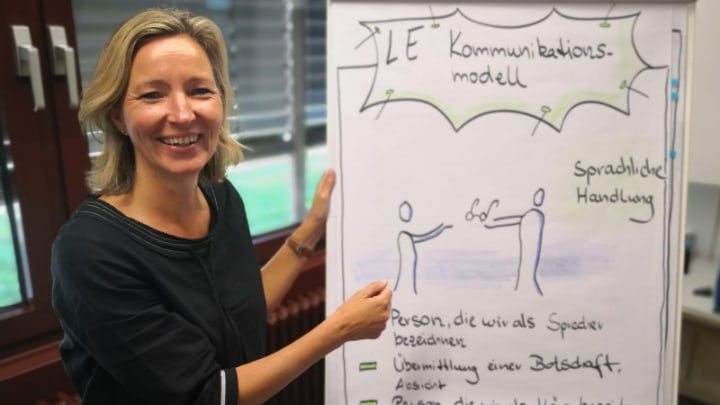 LE Kommunikations-
modell
Sprachliche
Handlung
Person, die wir als Sprecher
bezeichnen
Übermittlung einer Botschaft,
Absicht
Person die wir als Hörer